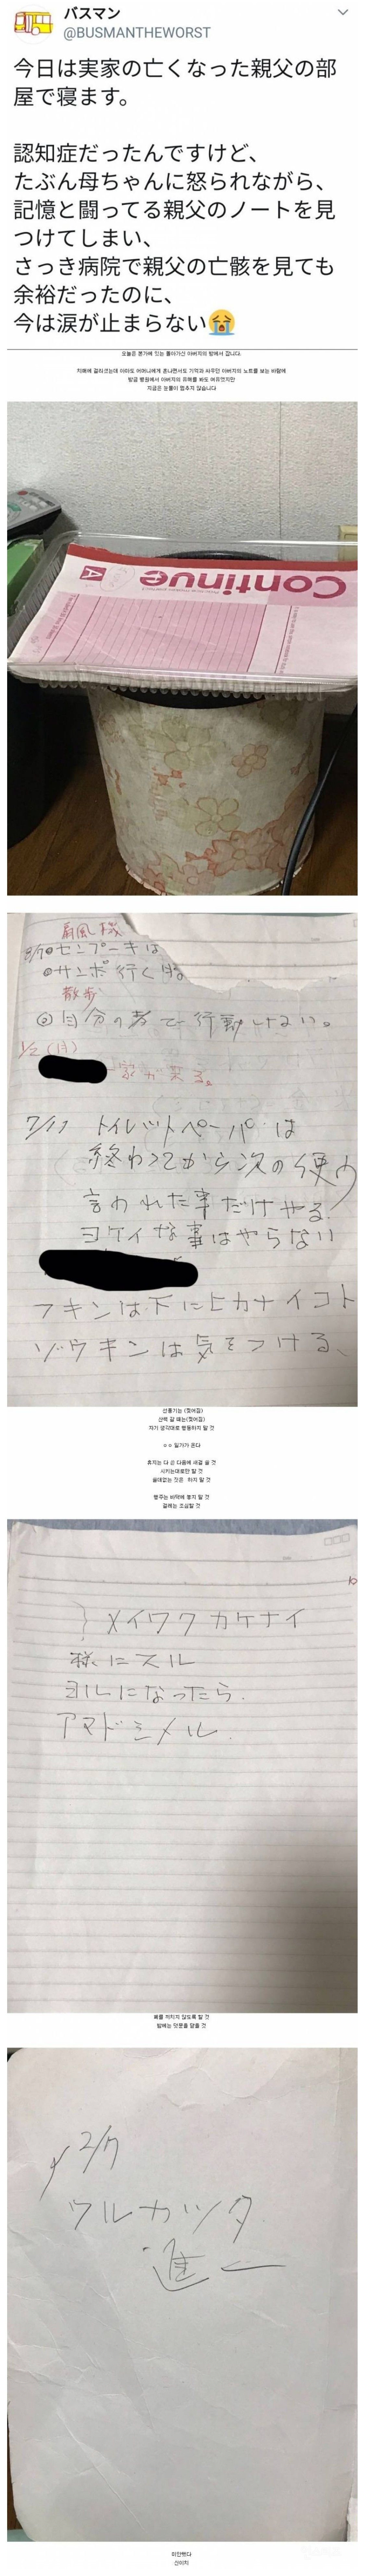 バスマン
@BUSMANTHEWORST
今日は実家の亡くなった親父の部
屋で寝ます。
認知症だったんですけど、
たぶん母ちゃんに怒られながら、
記憶と闘ってる親父のノートを見
つけてしまい、
さっき病院で親父の亡骸を見ても
余裕だったのに、
今は涙が止まらない😭
오늘은 본가에 있는 돌아가신 아버지의 방에서 잡니다.
치매에 걸리셨는데 아마도 어머니에게 혼나면서도 기억과 싸우던 아버지의 노트를 보는 바람에
방금 병원에서 아버지의 유해를 봐도 여유였지만
지금은 눈물이 멈추지 않습니다
Continue
A
扇風機
8/10センプーキは
サンポ行く時
散歩
◎自分の考で行動しない。
1/2(月)
家が来る。
7/17 トイレットペーパーは
終わってから次の使う
言われた事だけやる.
ヨケイな事はやらない
フキンは下にヒカナイコト
ゾウキンは気をつける、
선풍기는 (찢어짐)
산책 갈 때는(찢어짐)
자기 생각대로 행동하지 말 것
ㅇㅇ 일가가 온다
휴지는 다 쓴 다음에 새걸 쓸 것
시키는대로만 할 것
쓸데없는 짓은 하지 말 것
행주는 바닥에 놓지 말 것
걸레는 조심할 것
メイワクカケナイ
様にスル
ヨルになったら.
アマドシメル.
폐를 끼치지 않도록 할 것
밤에는 덧문을 닫을 것
2/7
ワルカッタ
進一
미안했다
신이치